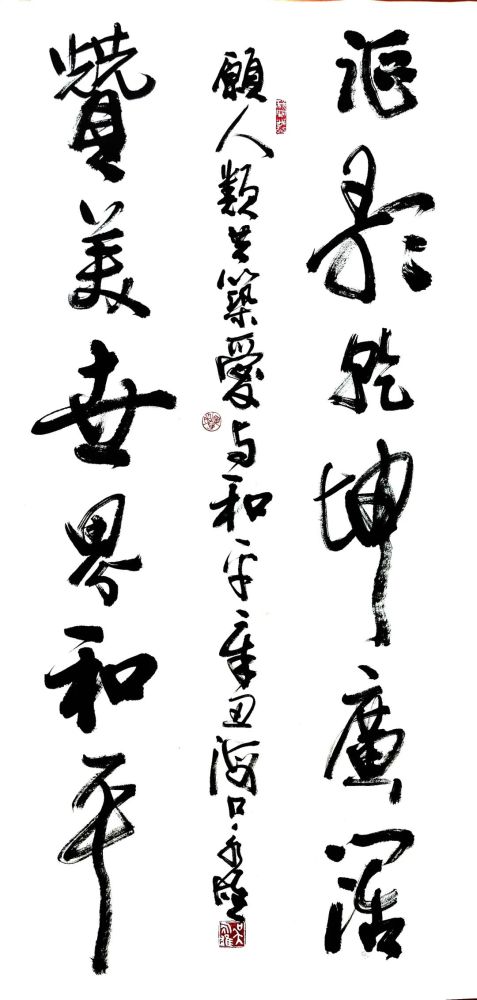 謳歌乾坤廣闊
贊美世界和平
願人類共築愛与和平辛丑海口永雄